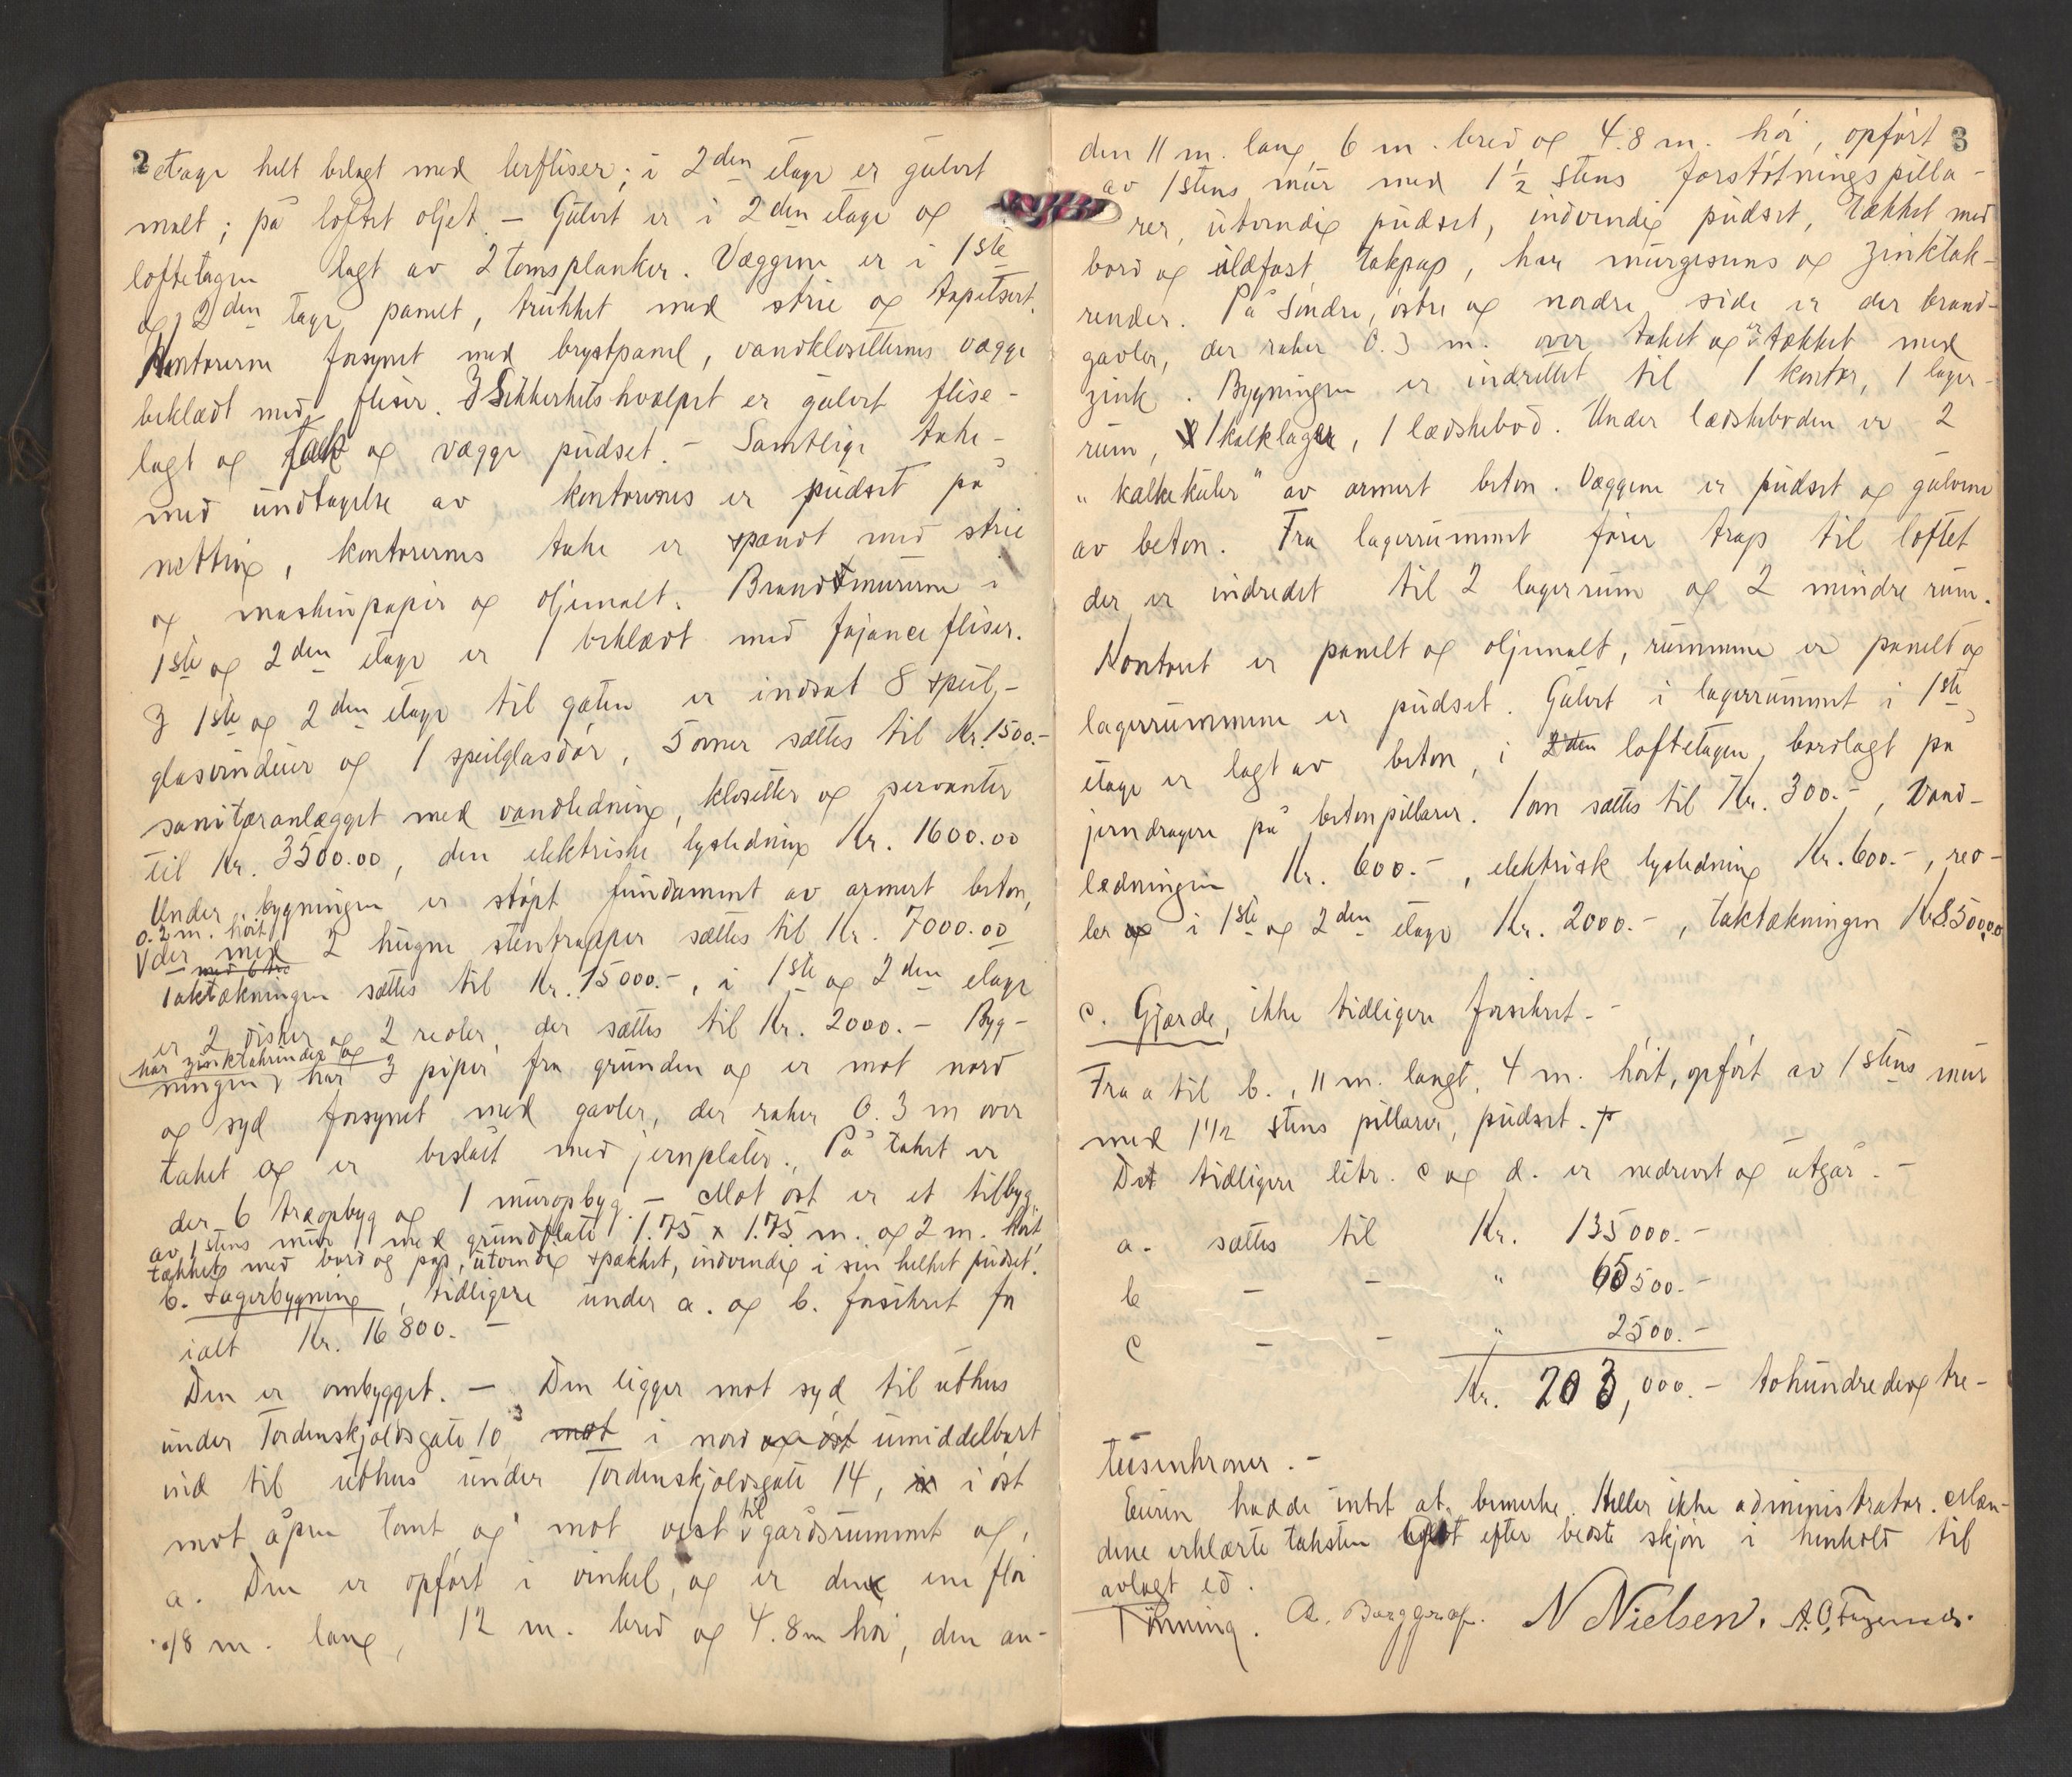 2
etage helt belagt med lerfliser; i 2den etage er gulvet
malt; på loftet oljet. – Gulvet er i 2den etage og
loftetagen lagt av 2 toms planker. Væggene er i 1ste
og 2den etage panelt, trukket med strie og tapetsert.
Kontorerne forsynet med brystpanel, vandklosetternes vægge
beklædt med fliser. I Sikkerhetshvælvet er gulvet flise-
lagt og tak og vægge pudset. – Samtlige take
med undtagelse av kontorenes er pudset på
netting, kontorernes take er spændt med strie
og maskinpapir og oljemalt. Brandmurerne i
1ste og 2den etage er beklædt med fajance fliser.
I 1ste og 2den etage til gaten er indsat 8 speil-
glasvinduer og 1 speilglasdør, 5 ovner sættes til Kr. 1500.–
sanitæranlægget med vandledning, klosetter og servanter
til Kr. 3500.00, den elektriske lysledning Kr. 1600.00
Under bygningen er støpt fundament av armert beton,
0.2 m. høit
der med 2 hugne stentrapper sættes til Kr. 7000.00
Taktækningen sættes til Kr. 15000.–, i 1ste og 2den etage
er 2 disker og 2 reoler, der sættes til Kr. 2000.– Byg-
har zinktakrender og
ningen har 3 piper fra grunden og er mot nord
og syd forsynet med gavler, der raker 0.3 m over
taket og er beslått med jernplater. På taket er
der 6 træopbyg og 1 muropbyg. – Mot øst er et tilbyg,
av 1 stens mur med grundflate 1.75 x 1.75 m. og 2 m. høit
tækket med bord og pap, utvendig spækket, indvendig i sin helhet pudset.
b. Lagerbygning, tidligere under a. og b. forsikret for
ialt Kr. 16800.–
Den er ombygget. – Den ligger mot syd til uthus
under Tordenskjoldsgate 10 mot i nord og øst umiddelbart
ind til uthus under Tordenskjoldsgate 14, i øst
mot åpen tomt og mot vest til gårdsrummet og
a. Den er opført i vinkel, og er den ene fløi
18 m. lang, 12 m. bred og 4.8 m høi, den an-
3
den 11 m. lang, 6 m. bred og 4.8 m. høi, opført
av 1 stens mur med 1 ½ stens forstøtningspilla-
rer, utvendig pudset, indvendig pudset, tækket med
bord og ildfast takpap, har murgesims og zinktak-
render. På søndre, østre og nordre side er der brand-
gavler, der raker 0.3 m. over taket og er tækket med
zink. Bygningen er indrettet til 1 kontor, 1 lager-
rum, 1 kalklager, 1 lædskebod. Under lædskeboden er 2
"kalkekuler" av armert beton. Væggene er pudset og gulvene
av beton. Fra lagerrummet fører trap til loftet
der er indredet til 2 lagerrum og 2 mindre rum.
Kontoret er panelt og oljemalt, rummene er panelt og
lagerrummene er pudset. Gulvet i lagerrummet i 1ste
etage er lagt av beton, i 2den loftetagen, bordlagt på
jerndragere på betonpillarer. 1 ovn sættes til Kr. 300.–, Vand-
ledningen Kr. 600.–, elektrisk lysledning Kr. 600.–, reo-
ler i 1ste og 2den etage Kr. 2000.–, taktækningen Kr. 8500.00
c. Gjærde, ikke tidligere forsikret.–
Fra a til b., 11 m. langt, 4 m. høit, opført av 1 stens mur
med 1 1/2 stens pillarer, pudset.
Det tidligere litr. c og d. er nedrevet og utgår.–
a. sættes til Kr. 135000.–
b – – " 65500.–
c – – " 2500.–
Kr. 203,000.– tohundredeogtre-
tusenkroner.–
Eieren hadde intet at bemerke. Heller ikke administrator. Mæn-
dene erklærte taksten avgit efter bedste skjøn i henhold til
avlagt ed.
Tønning. A. Borggraf. N Nielsen.